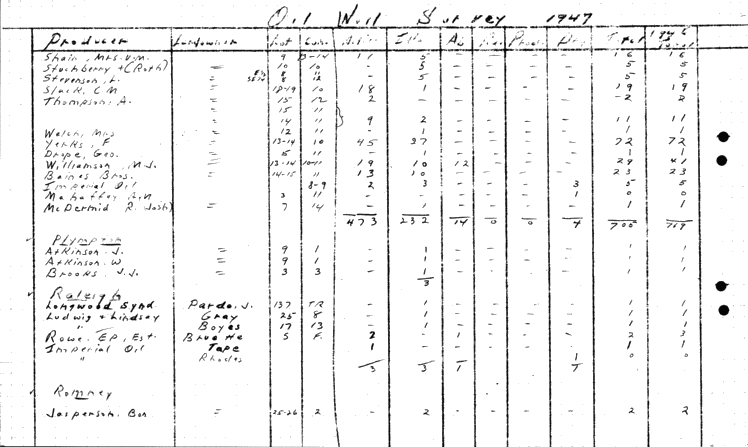 Oil Well Survey 1947
Producer Landowner Lot Con. Idle Ab Total 1946
Shain, Mrs. V.M. = 9 13-14 11 5 - - - - 16 16
Stuchberry + (Roth) = 10 10 - 5 - - - - 5 5
Stevenson, L. = 8 12 - 5 - - - - 5 5
Slack, C M = 18-19 10 18 1 - - - - 19 19
Thompson, A. = 15 12 2 - - - - - 2 2
= 15 11
= 14 11 9 2 - - - - 11 11
Welch, Mrs = 12 11 - 1 - - - - 1 1
Yerks, F = 13-14 10 45 27 - - - - 72 72
Drope, Geo. = 5 11 - 1 - - - - 1 1
Williamson, M.J. = 13-14 10-11 19 10 12 - - - 29 41
Baines Bros. = 14-15 11 13 10 - - - - 23 23
Imperial Oil 8-9 2 3 - - - 3 5 5
Mahaffey A.M = 3 11 - - - - - 1 - -
McDermid R. Josh) = 7 14 - 1 - - - - 1 1
473 232 14 0 0 4 705 719
Plympton
Atkinson. J. = 9 1 - 1 - - - - 1 1
Atkinson. W = 9 1 - 1 - - - - 1 1
Brooks. J.J. = 3 3 - 1 - - - - 1 1
3
Raleigh
Longwood Synd. Pardo. J. 137 T.R - 1 - - - - 1 1
Ludwig + Lindsay Gray 25 8 - 1 - - - - 1 1
" Boyes 17 13 - 1 - - - - 1 1
Rowe. EP, Est. Bruette 5 F. 2 - 1 - - - 2 3
Imperial Oil Tape 1 - - - - - 1 1
" Rhodes 1 0 0
3 3 1 1
Romney
Jasperson. Bon = 25-26 2 - 2 - - - - 2 2